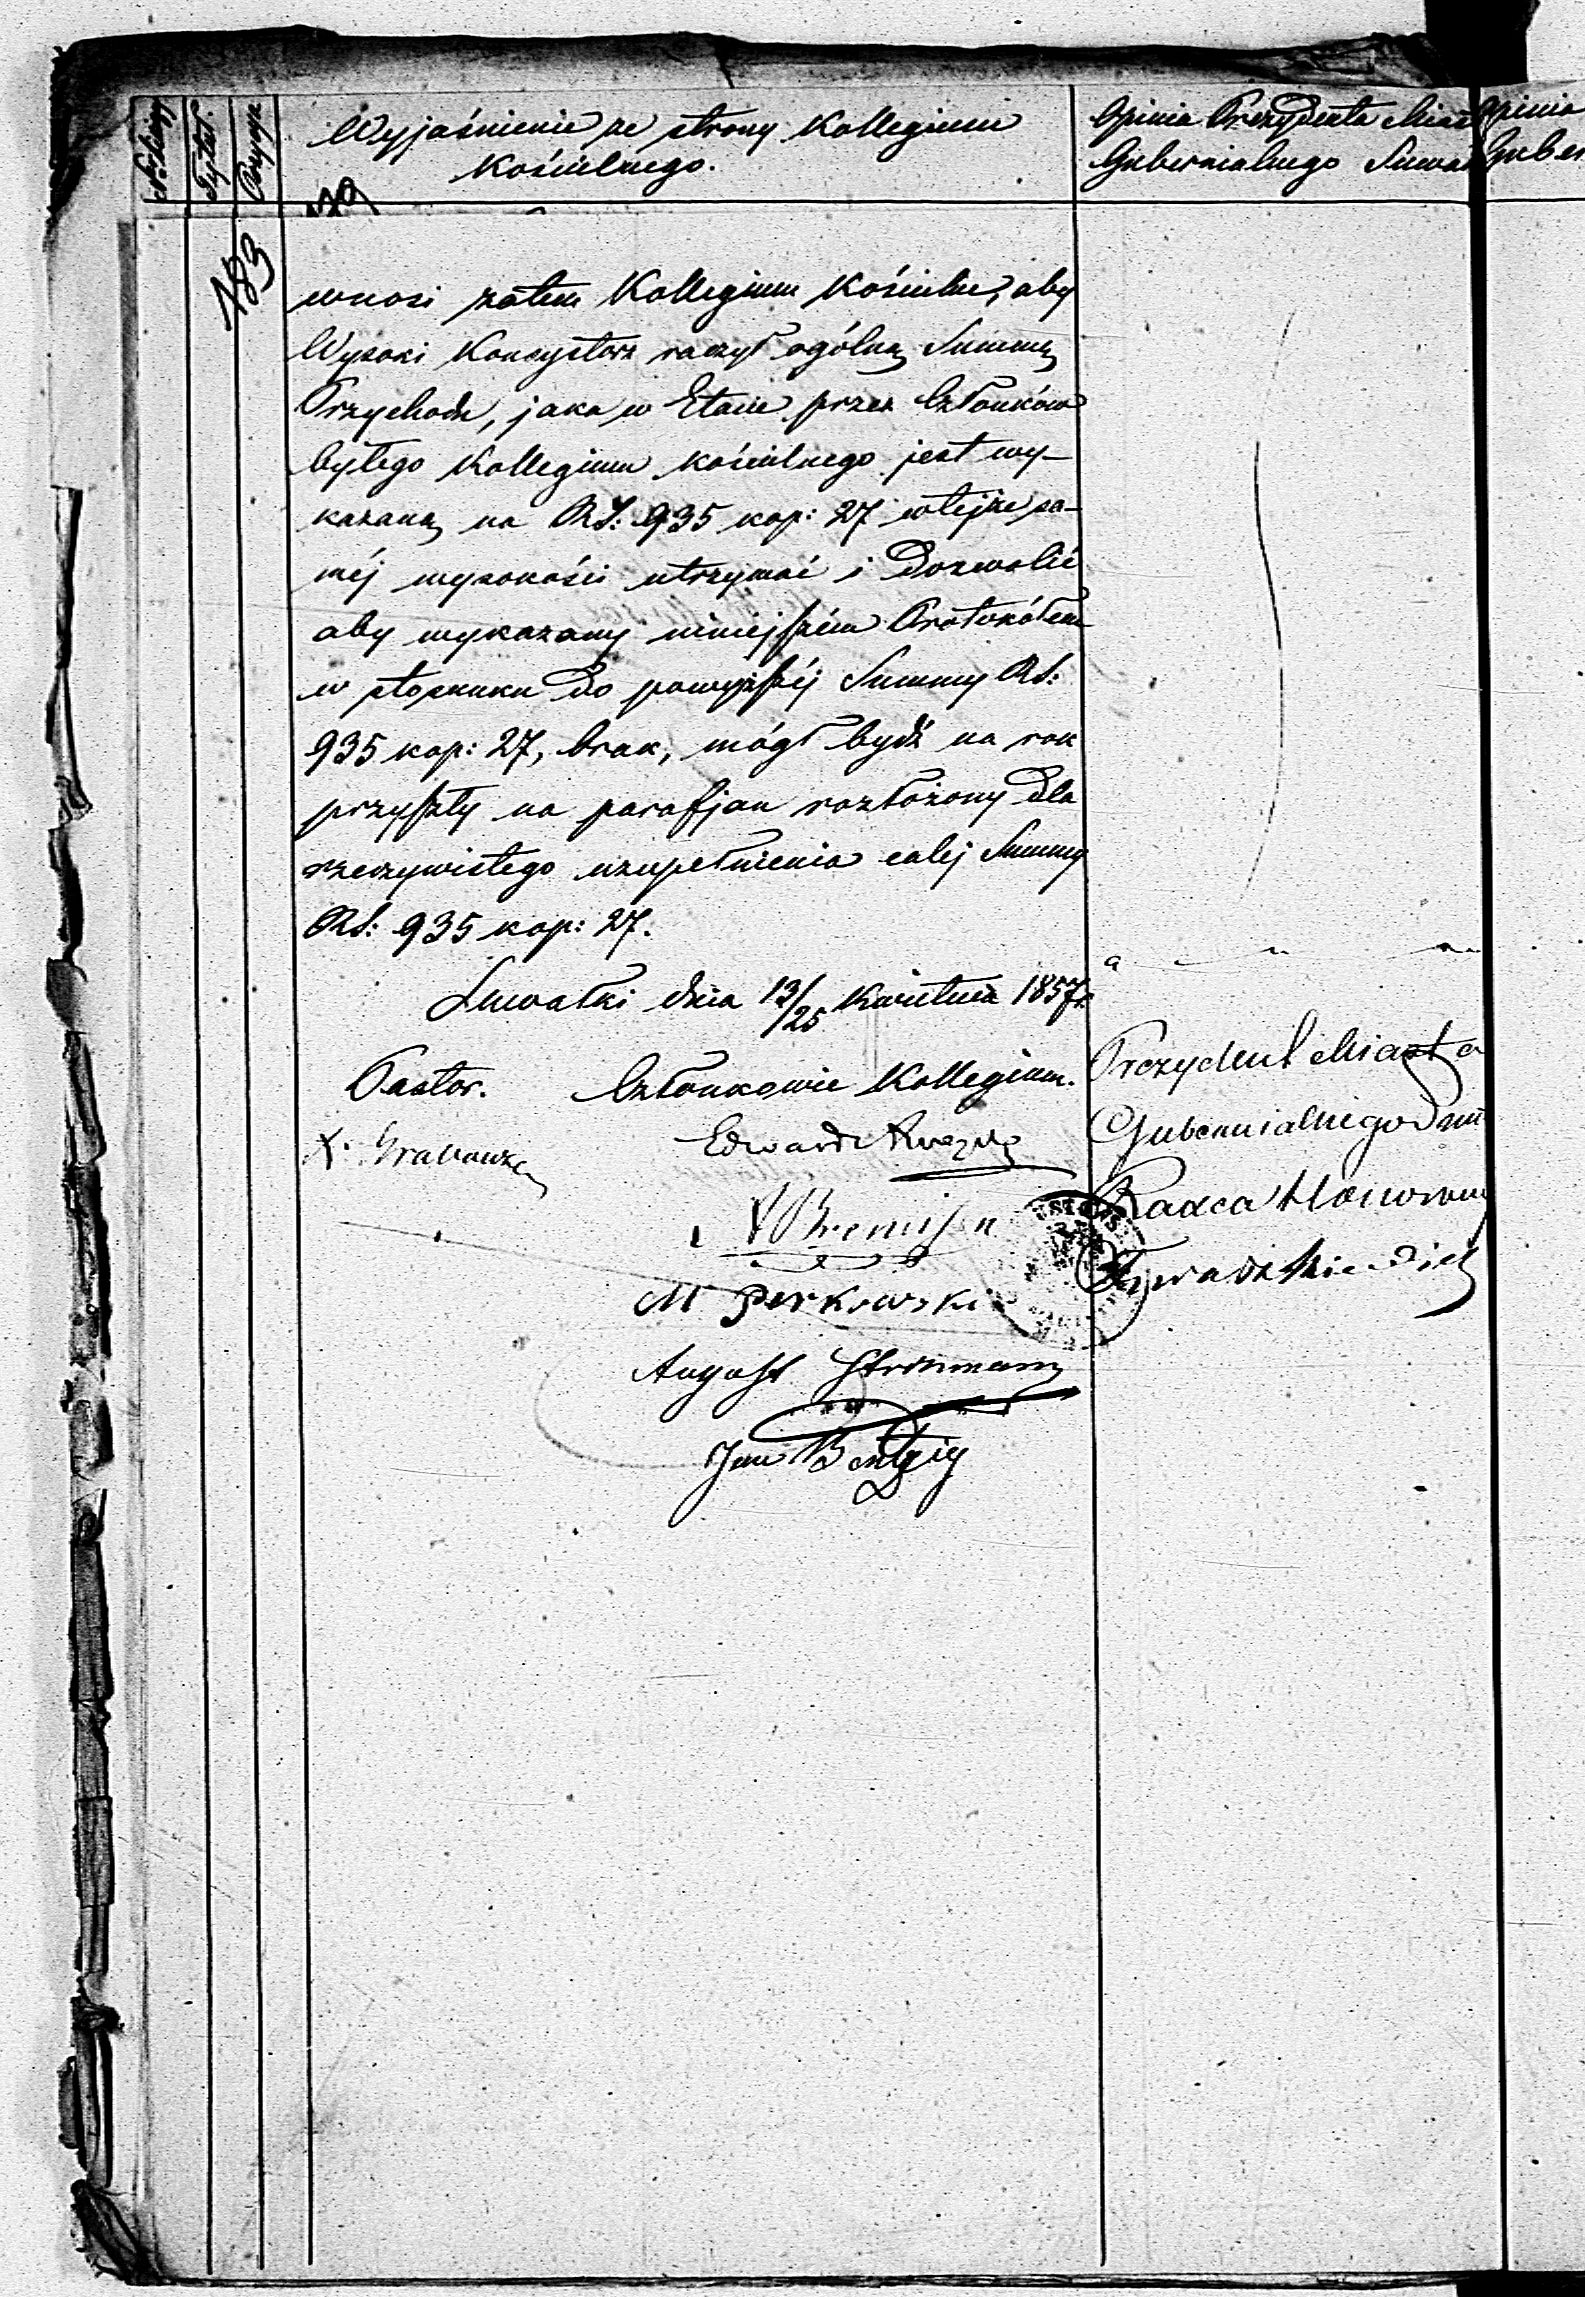 Tytuł.
Pozycya
Wyjaśnienie ze strony Kollegium
Kościelnego.
Opinia Prezydenta Miast
Gubernialnego Suwał
Opinia
Guber
179
183
wnosi zatem Kollegium Kościelne, aby
Wysoki Konsystorz raczył ogólną Summę
Przychodu, jaka w Etacie przez Członków
byłego Kollegium kościelnego jest wy-
kazaną na RS: 935 kop: 27 w tejże sa-
méj wysokości utrzymać i dozwolić
aby wykazany niniejszém Protokółem
w stosunku do powyższéj Summy RS:
935 kop: 27, brak, mógł bydź na rok
przyszły na parafjan rozłożony dla
rzeczywistego uzupełnienia całej Summy
RS: 935 kop: 27.
Suwałki dnia 13/25 Kwietnia 1857 r.
Pastor. Członkowie Kollegium.
Prezydent Miasta
Gubernialnego
X.
Edward
Radca Honorowy
M Perkowski
August
Jan